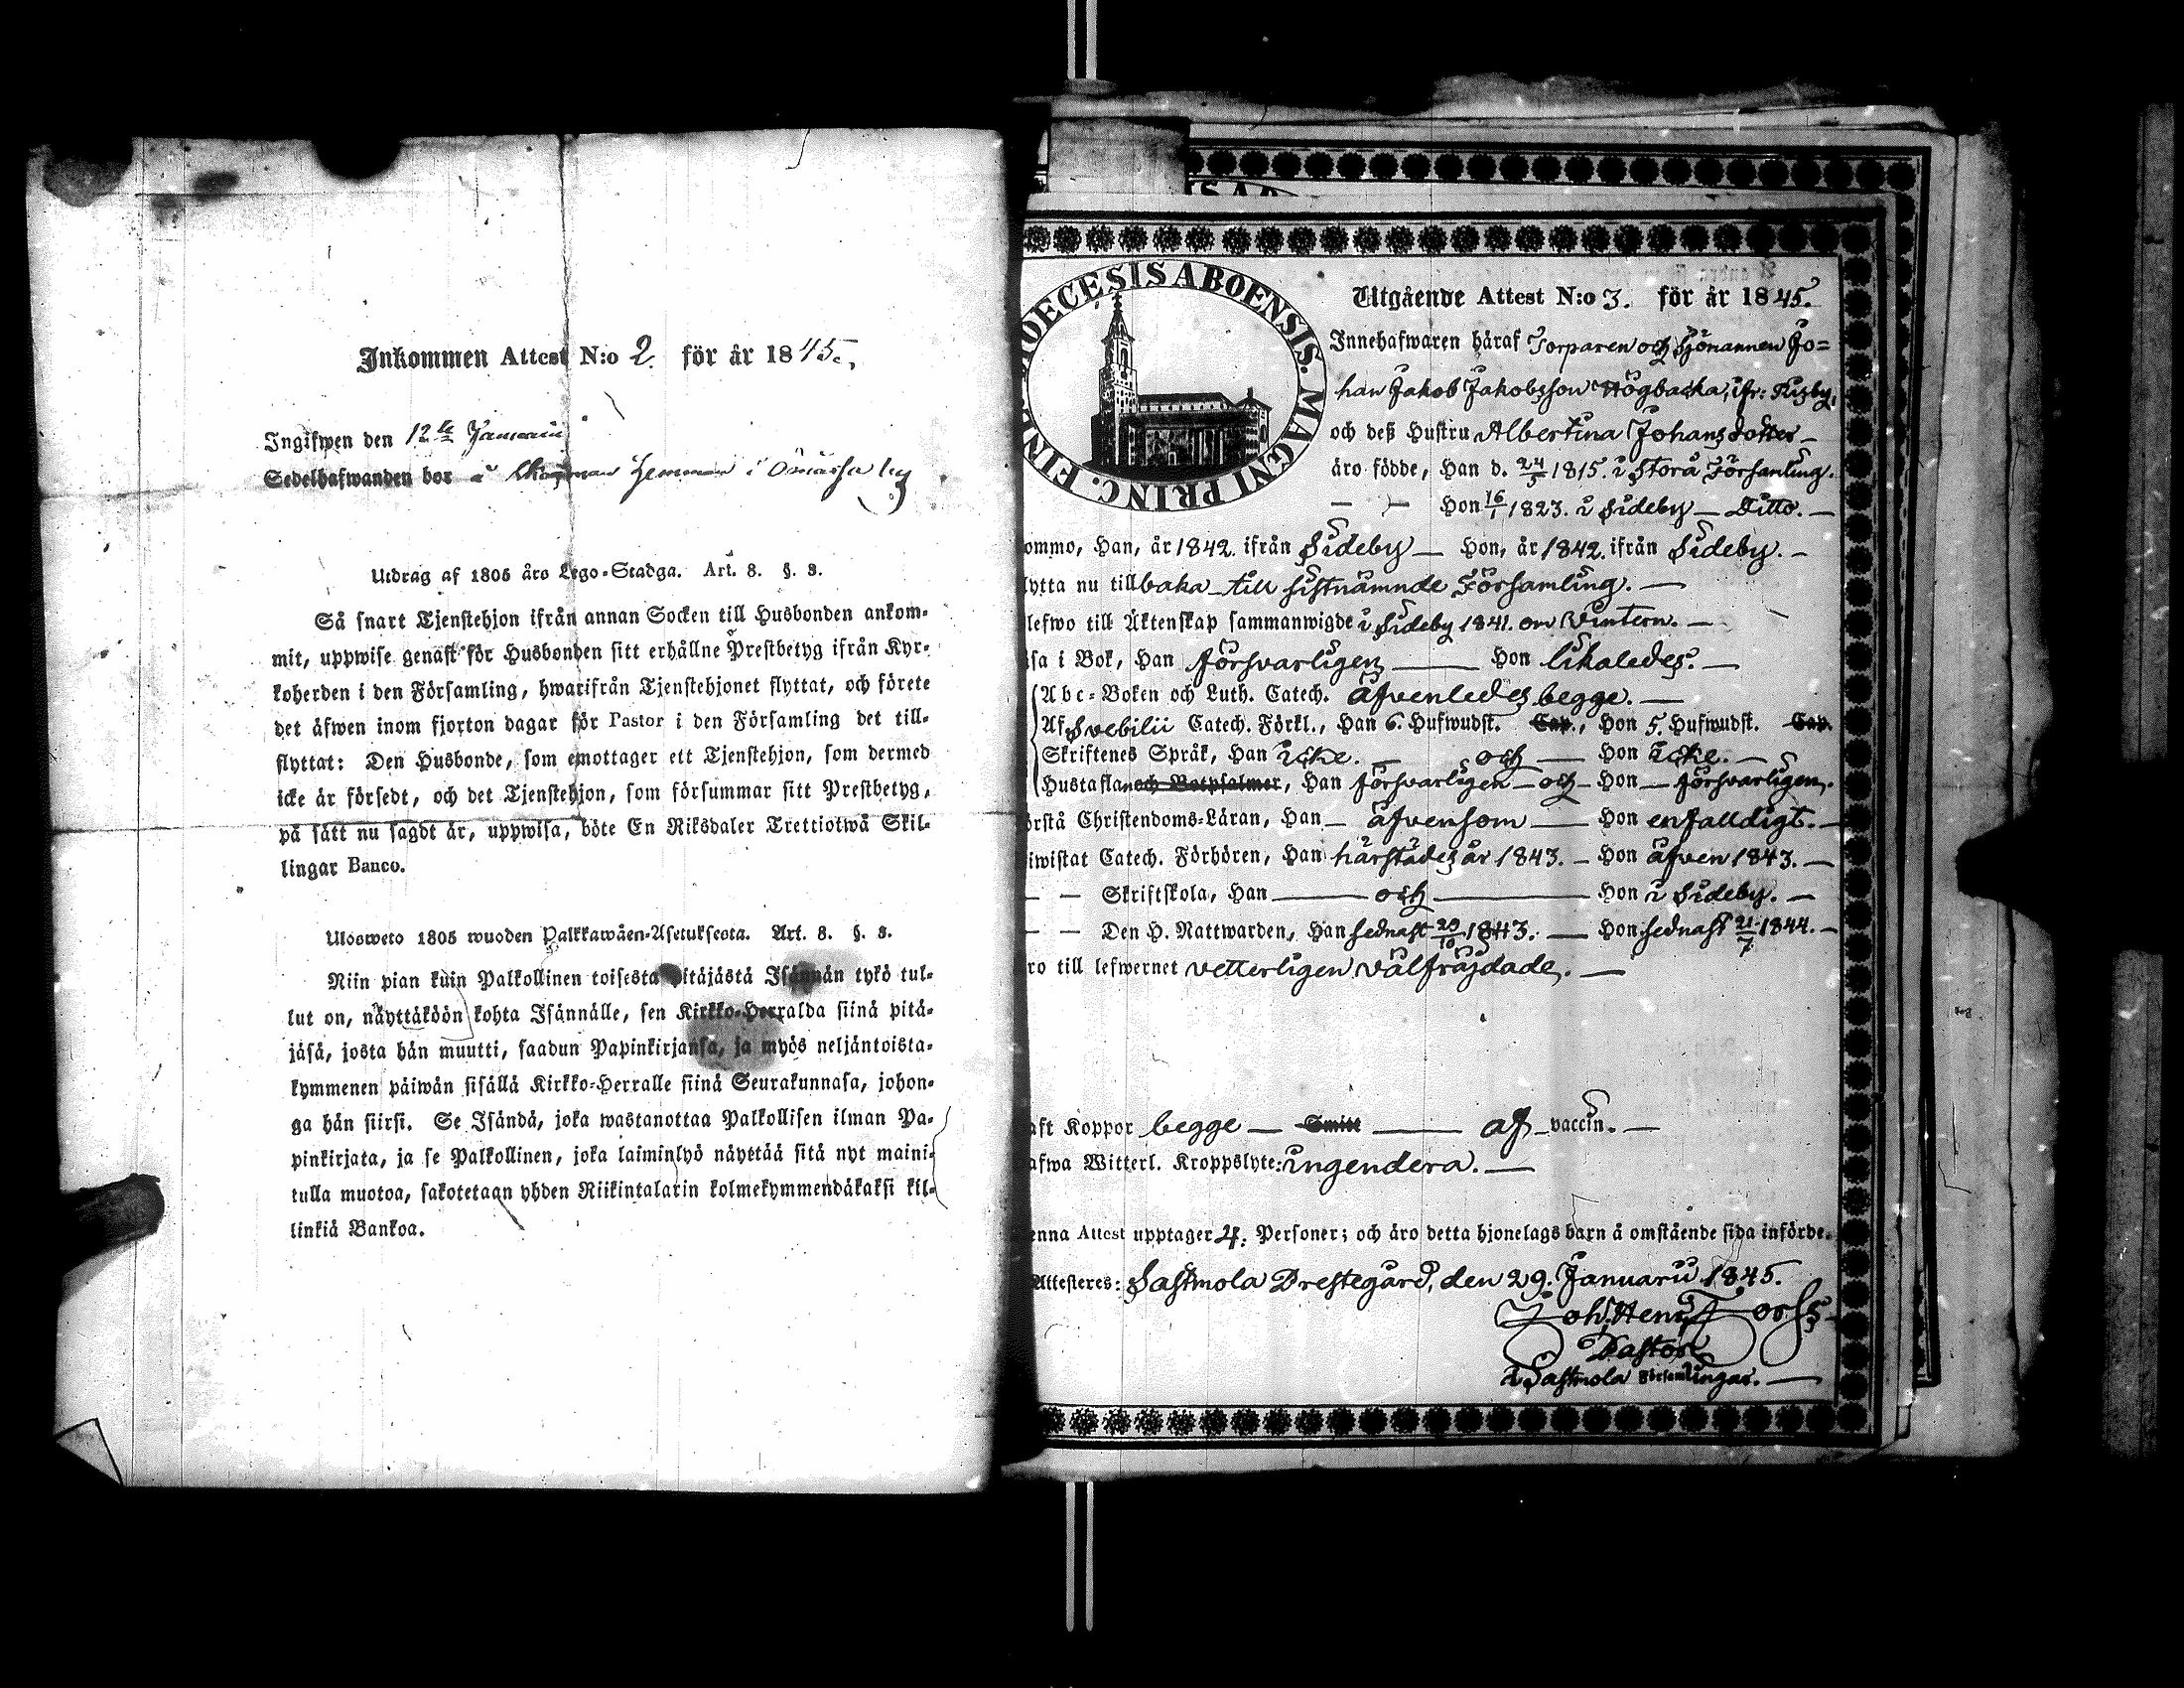 Inkommen Attest N:o 2. för år 1845.
Ingifwen den 12te Januarii
Sedelhafwanden bor å Skogman Hemman i Ömossa by
Utdrag af 1805 åro Lego-Stadga. Art. 8. §. 3.
Så snart Tjenstehjon ifrån annan Socken till Husbonden ankom-
mit, uppwise genast för Husbonden sitt erhållne Prestbetyg ifrån Kyr-
koherden i den Församling, hwarifrån Tjenstehjonet flyttat, och förete
det äfwen inom fjorton dagar för Pastor i den Församling det till-
flyttat: Den Husbonde, som emottager ett Tjenstehjon, som dermed
icke är försedt, och det Tjenstehjon, som försummar sitt Prestbetyg,
på sätt nu sagdt är, uppwisa, böte En Riksdaler Trettiotwå Skil-
lingar Banco.
Ulosweto 1805 wuoden Palkkawäen-Asetuksesta. Art. 8. §. 3.
Niin pian kuin Palkollinen toisesta pitäjästä Isännän tykö tul-
lut on, näyttäköön kohta Isännälle, sen Kirkko-Herralda siinä pitä-
jäsä, josta hän muutti, saadun Papinkirjansa, ja myös neljäntoista-
kymmenen päiwän sisällä Kirkko-Herralle siinä Seurakunnasa, johon-
ga hän siirsi. Se Isändä, joka wastanottaa Palkollisen ilman Pa-
pinkirjata, ja se Palkollinen, joka laiminlyö näyttää sitä nyt maini-
tulla muotoa, sakotetaan yhden Riikintalarin kolmekymmendäkaksi kil-
linkiä Bankoa.
DIOECESIS ABOENSIS. MAGNI PRINC. FINL.
Utgående Attest N:o 3. för år 1845.
Innehafwaren häraf Torparen och Sjömannen Jo=
han Jakob Jakobsson Högbacka, ifr: Risby,
och dess Hustru Albertina Johansdotter –
äro födde, Han d. 24/5 1815. i Stora Församling.
— — Hon 16/1 1823. i Sideby — Ditto. —
ommo, Han, år 1842. ifrån Sideby — Hon, år 1842. ifrån Sideby. –
lytta nu tillbaka till sistnämnde Församling. —
lefwo till Äktenskap sammanwigde i Sideby 1841. om Vintern. —
sa i Bok, Han försvarligen — Hon likaledes. —
Abc-Boken och Luth. Catech. äfvenledes begge. —
Af Svebilii Catech. Förkl., Han 6. Hufwudst. Cap., Hon 5. Hufwudst. Cap.
Skriftenes Språk, Han icke. — och — Hon icke. —
Hustaflan och Botpsalmer, Han försvarligen — och – Hon — försvarligen.
örstå Christendoms-Läran, Han — äfvensom — Hon enfalldigt. —
iwistat Catech. Förhören, Han härstädes år 1843. – Hon äfven 1843. —
— — Skriftskola, Han — och — Hon i Sideby. —
— — Den H. Nattwarden, Han sednast 20/10 1843. — Hon sednast 21/7 1844. –
ro till lefwernet vetterligen välfräjdade. —
aft Koppor begge — Smitt — af vaccin. —
afwa Witterl. Kroppslyte: ingendera. —
enna Attest upptager 4. Personer; och äro detta hjonelags barn å omstående sida införde.
Attesteres: Sastmola Prestegård, den 29. Januarii 1845.
Joh. Henr. Forss
Pastor
i Sastmola Församlingar. —